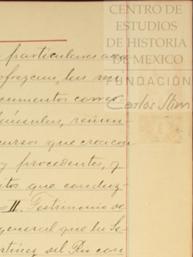 CENTRO DE
ESTUDIOS
DE HISTORIA
DE MEXICO
FUNDACIÓN
Carlos Slim
particulares
ofrezcan, les
cumentos como
reunion
cursos que crean con
y procedentes, y
tos que conduz-
II. Testimonio de
general que
del Rio con